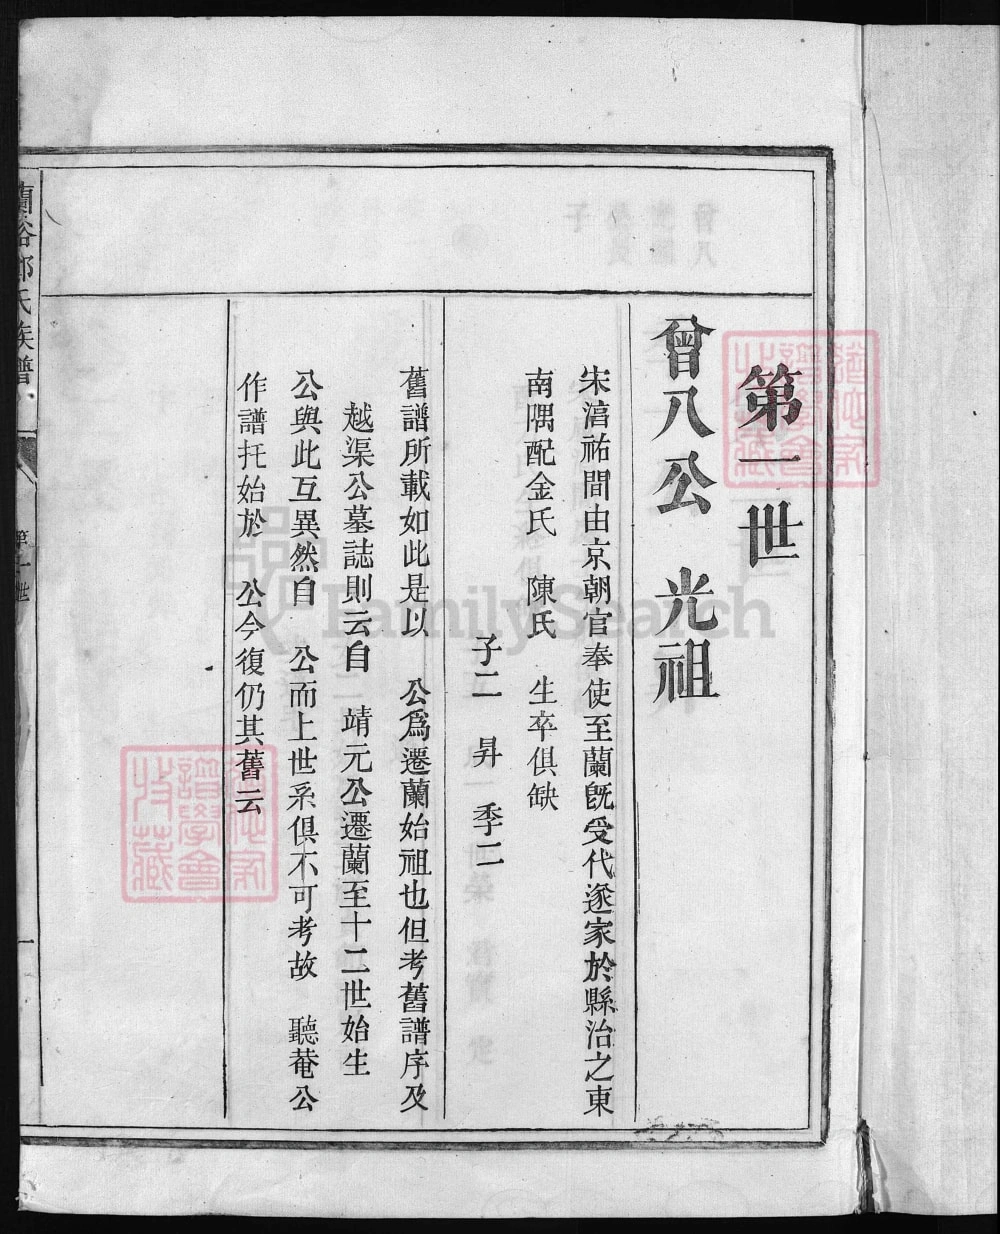 第一世
曾八公 光祖
宋淳祐間由京朝官奉使至蘭旣受代遂家於縣治之東
南隅配金氏 陳氏 生卒俱缺
子二 昇 季二
舊譜所載如此是以 公爲遷蘭始祖也但考舊譜序及
越渠公墓誌則云自 靖元公遷蘭至十二世始生
公與此互異然自 公而上世系俱不可考故 聽菴公
作譜托始於 公今復仍其舊云
蘭谿鄭氏族譜
第一世
一
FamilySearch